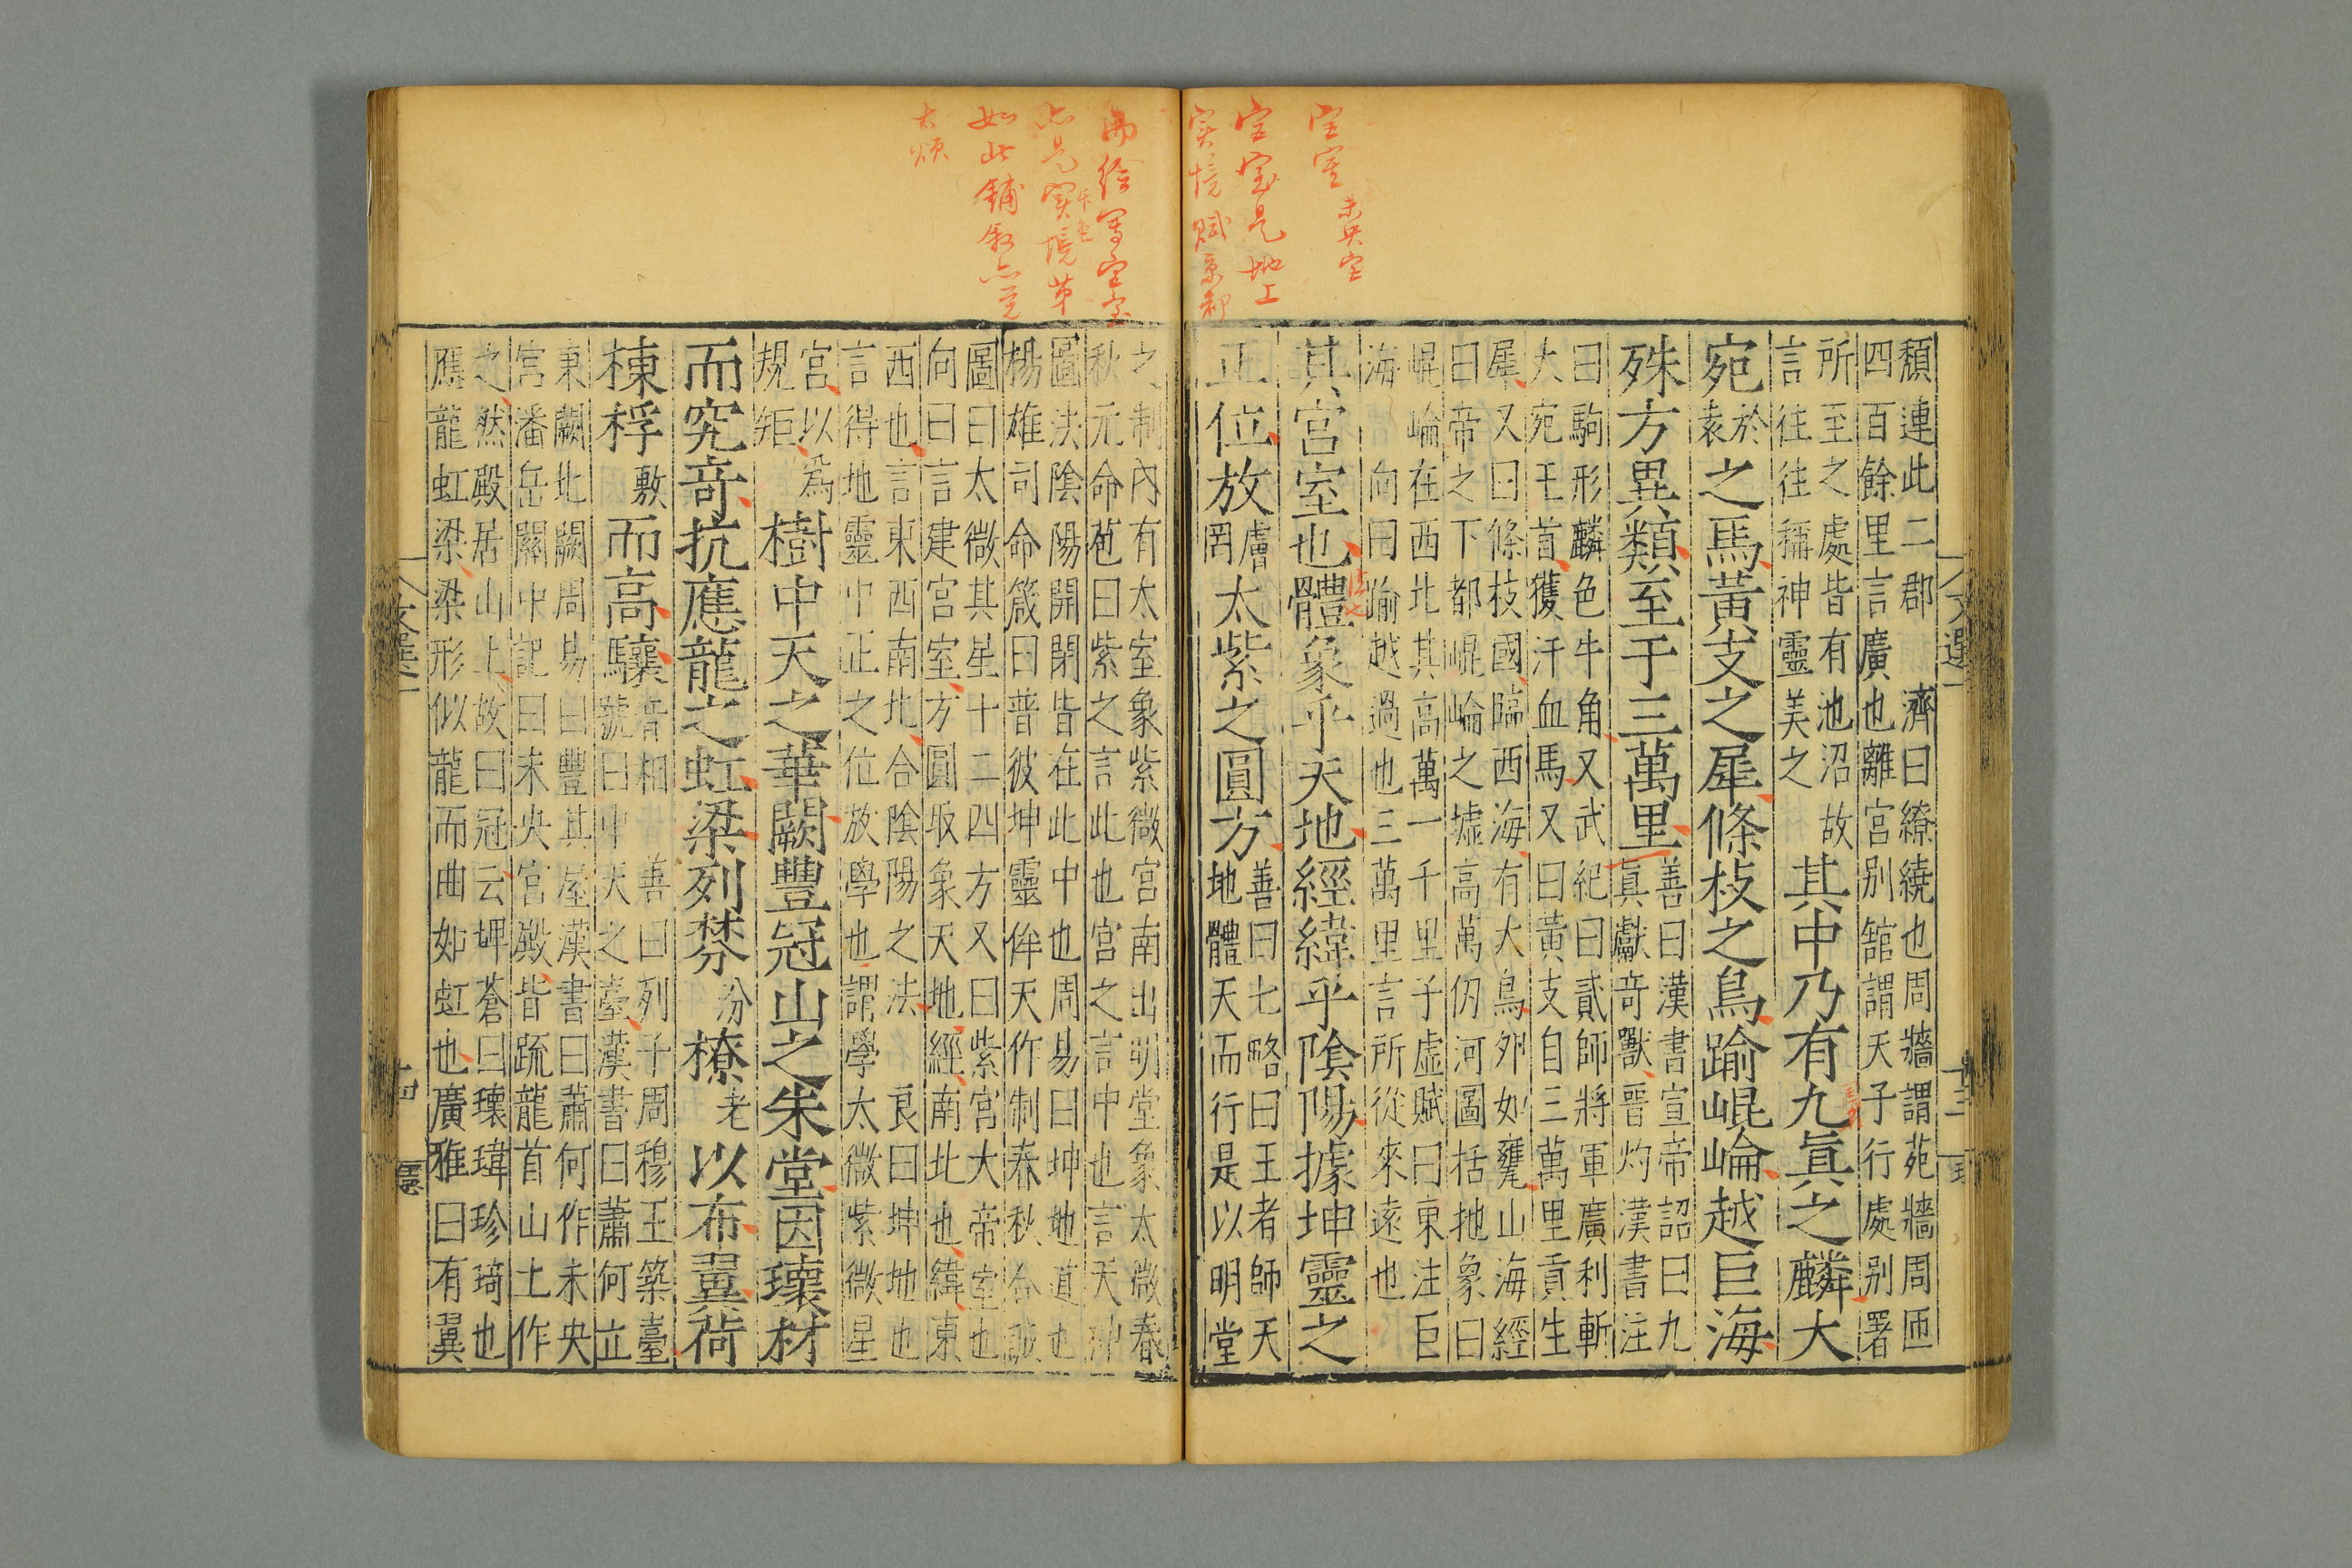 頺連此二郡　濟曰繚繞也周牆謂苑牆周匝
四百餘里言廣也離宮別舘謂天子行處別署
所至之處皆有池沼故
言往往稱神靈美之
其中乃有九眞之麟大
宛
於
袁
之馬黃支之犀條枝之鳥踰崐崘越巨海
殊方異類至于三萬里
善曰漢書宣帝詔曰九
眞獻竒獸晉灼漢書注
曰駒形麟色牛角又武紀曰貳師將軍廣利斬
大宛王首獲汗血馬又曰黃支自三萬里貢生
犀又曰條枝國臨西海有大鳥卵如甕山海經
曰帝之下都崐崘之墟高萬仞河圖括地象曰
崐崘在西北其高萬一千里子虛賦曰東注巨
海　向曰踰越過也三萬里言所從來遠也
其宮室也體象乎天地經緯乎陰陽據坤靈之
正位放
膚
罔
太紫之圓方
善曰七略曰王者師天
地體天而行是以明堂
文選一
十三
宮室是地上
實境賦京都
之制內有太室象紫微宮南出明堂象太微春
秋元命苞曰紫之言此也宮之言中也言天神
圖法陰陽開閉皆在此中也周易曰坤地道也
楊雄司命箴曰普彼坤靈侔天作制春秋合誠
圖曰太微其星十二四方又曰紫宮大帝室也
向曰言建宮室方圓取象天地經南北也緯東
西也言東西南地合陰陽之法　良曰坤地也
言得地靈中正之位放學也謂學太微紫微星
宮以爲
規矩
樹中天之華闕豐冠山之朱堂因瓌材
而究竒抗應龍之虹梁列棼
汾
橑
老
以布翼荷
棟桴
敷
而高驤
音相　善曰列子周穆王築臺
號曰中天之臺漢書曰蕭何立
東闕北闕周易曰豐其屋漢書曰蕭何作未央
宮潘岳關中記曰未央宮殿皆疏龍首山土作
之然殿居山上故曰冠云埤蒼曰瓌瑋珍琦也
應龍虹梁梁形似龍而曲如虹也廣雅曰有翼
文選一
十四
如此鋪敘亦覺
太煩